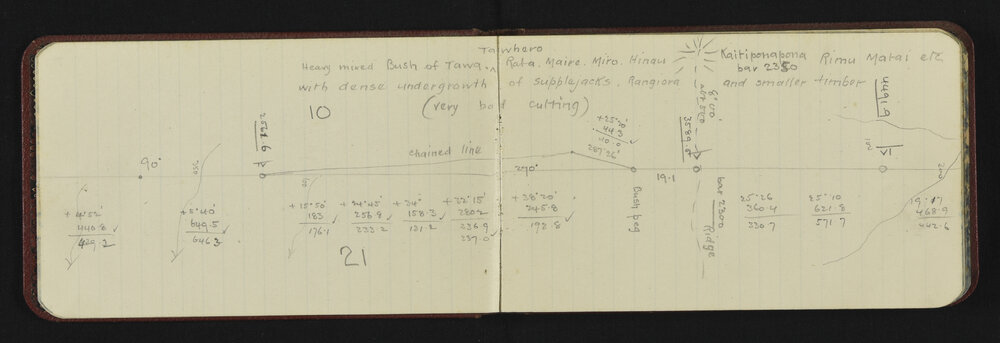 Tawhero
Heavy mixed Bush of Tawa. ^ Rata. Maire. Miro. Hinau
with dense undergrowth of supplejacks. Rangiora
(very bad cutting)
Kaitiponapona Rimu Matai etc
bar 2350
and smaller timber
10
2561.6
chained line
90°
270°
350
100
+25°20'
44.3
40.0
287°26'
3589.0
4491.9
100
200
19.1
Bush peg
bar 2300
Ridge
+4°52'
440.8
429.2
+5°40'
649.5
646.3
+15°50'
183
176.1
+24°45'
256.8
233.2
+34°
158.3
131.2
+32°15'
280.2
236.9
237.0
+38°20'
245.8
192.8
25°26
360.4
330.7
25°10
621.8
571.7
19°17
468.9
442.6
21